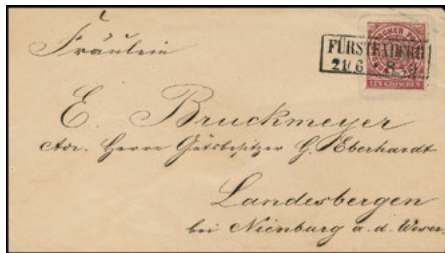 Fräulein
FÜRSTENBERG
21/6 8-9
EIN GROSCHEN
E. Bruckmeyer
Adr. Herrn Gutsbesitzer G. Eberhardt
Landesbergen
bei Nienburg a. d. Weser.